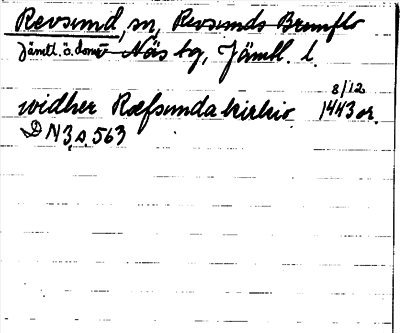 Revsund, sn, Revsunds Brunflo
Jämtl. ö. doms. Näs tg, Jämtl. l.
8/12
widher Ræfsunda kirkio 1443 or.
DN 3, s. 563